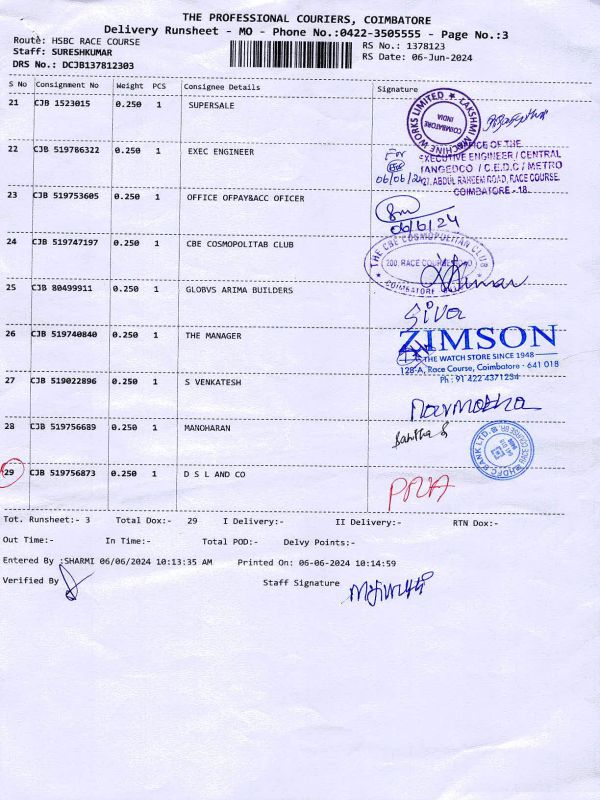 THE PROFESSIONAL COURIERS, COIMBATORE
Delivery Runsheet - MO - Phone No.:0422-3505555 - Page No.:3
Route: HSBC RACE COURSE
RS No.: 1378123
Staff: SURESHKUMAR
RS Date: 06-Jun-2024
DRS No.: DCJB137812303
S No Consignment No Weight PCS Consignee Details Signature
21 CJB 1523015 0.250 1 SUPERSALE
LAKSHMI MACHINE WORKS LIMITED ★
COIMBATORE
INDIA
22 CJB 519786322 0.250 1 EXEC ENGINEER
For
OFFICE OF THE
EXECUTIVE ENGINEER / CENTRAL
TANGEDCO / C.E.D.C / METRO
06/06/24
ABDUL RAHEEM ROAD, RACE COURSE.
COIMBATORE - 18.
23 CJB 519753605 0.250 1 OFFICE OFPAY&ACC OFICER
06/6/24
24 CJB 519747197 0.250 1 CBE COSMOPOLITAB CLUB
★ THE CBE COSMOPOLITAN CLUB ★
200, RACE COURSE ROAD
COIMBATORE
25 CJB 80499911 0.250 1 GLOBVS ARIMA BUILDERS
Siva
26 CJB 519740840 0.250 1 THE MANAGER
ZIMSON
THE WATCH STORE SINCE 1948
128-A, Race Course, Coimbatore - 641 018
Ph : 91 422 4371234
27 CJB 519022896 0.250 1 S VENKATESH
28 CJB 519756689 0.250 1 MANOHARAN
HDFC BANK LTD.
29 CJB 519756873 0.250 1 D S L AND CO
Tot. Runsheet:- 3 Total Dox:- 29 I Delivery:- II Delivery:- RTN Dox:-
Out Time:- In Time:- Total POD:- Delvy Points:-
Entered By :SHARMI 06/06/2024 10:13:35 AM Printed On: 06-06-2024 10:14:59
Verified By
Staff Signature